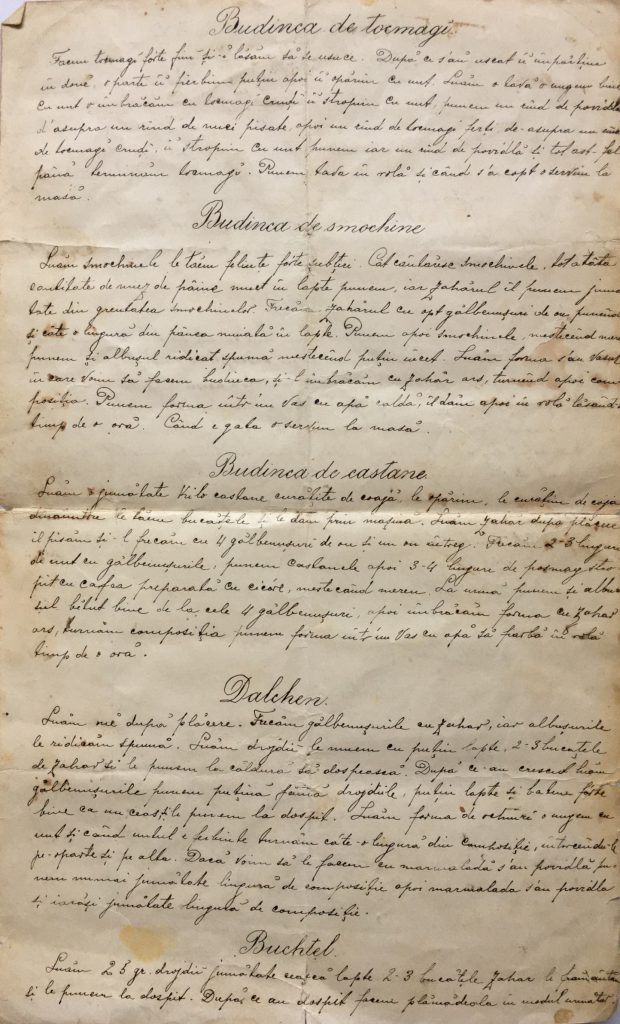 Budinca de tocmagi.
Facem tocmagi forte fini și-i lăsăm să se usuce. După ce s'au uscat îi împărțim
în două, o parte îi fierbem puțin apoi îi opărim cu unt. Luăm o tavă o ungem bine
cu unt o îmbrăcăm cu tocmagi crudi îi stropim cu unt, punem un rînd de povidlă
d'asupra un rînd de nuci pisate, apoi un rînd de tocmagi ferti, de-asupra un rînd
de tocmagi crudi, îi stropim cu unt punem iar un rînd de povidlă și tot ast-fel
până terminăm tocmagi. Punem tava în rolă și când s'a copt o servim la
masă.
Budinca de smochine
Luăm smochinele le tăem feliute forte subțiri. Cât cântăresc smochinele, tot atâta
cantitate de miez de pâine muet în lapte punem, iar zahărul îl punem jumă
tate din greutatea smochinelor. Frecăm zahărul cu opt gălbenușuri de ou, punând
și câte o lingură din pânea muiată în lapte. Punem apoi smochinele, mestecînd mereu
punem și albușul ridicat spumă mestecînd puțin încet. Luăm forma s'au vasul
în care voim să facem budinca, și-l îmbrăcăm cu zahăr ars, turnînd apoi com
poziția. Punem forma într'un vas cu apă caldă, îl dăm apoi în rolă lăsând
timp de o oră. Când e gata o servim la masă.
Budinca de castane.
Luăm o jumătate kilo castane curățite de coajă, le opărim, le curățim de coaja
dinaintru le tăem bucățele și le dăm prin mașina. Luăm zahăr dupa plăcere
îl pisăm și-l frecăm cu 4 gălbenușuri de ou și un ou întreg. Frecăm 2-3 linguri
de unt cu gălbenușurile, punem castanele apoi 3-4 linguri de posmag stro
pit cu cafea preparată cu cicóre, mestecând mereu. La urmă punem și albu
șul bătut bine de la cele 4 gălbenușuri, apoi îmbrăcăm forma cu zahăr
ars, turnăm compoziția punem forma într'un vas cu apă să fiarbă în rolă
timp de o oră.
Dalchen.
Luăm ouă după plăcere. Frecăm gălbenușurile cu zahar, iar albușurile
le ridicăm spumă. Luăm drojdii le muem cu puțin lapte, 2-3 bucățele
de zahar și le punem la căldură să dospească. După ce-au crescut luăm
gălbenușurile punem puțină făină drojdiile, puțin lapte și batem forte
bine ca un ceas și-le punem la dospit. Luăm forma de ochiuri o ungem cu
unt și când untul e fierbinte turnăm câte-o lingură din compoziție, întorcându-le
pe-oparte și pe alta. Dacă voim să le facem cu marmaladă s'au povidlă pu-
nem numai jumătate lingură de compoziție apoi marmalada s'au povidla
și iarăși jumătate lingură de compoziție.
Buchtel.
Luăm 25 gr. drojdii jumătate ceașcă lapte 2-3 bucățele zahar le frământăm
și le punem la dospit. După ce au dospit facem plămădeola în modul următor